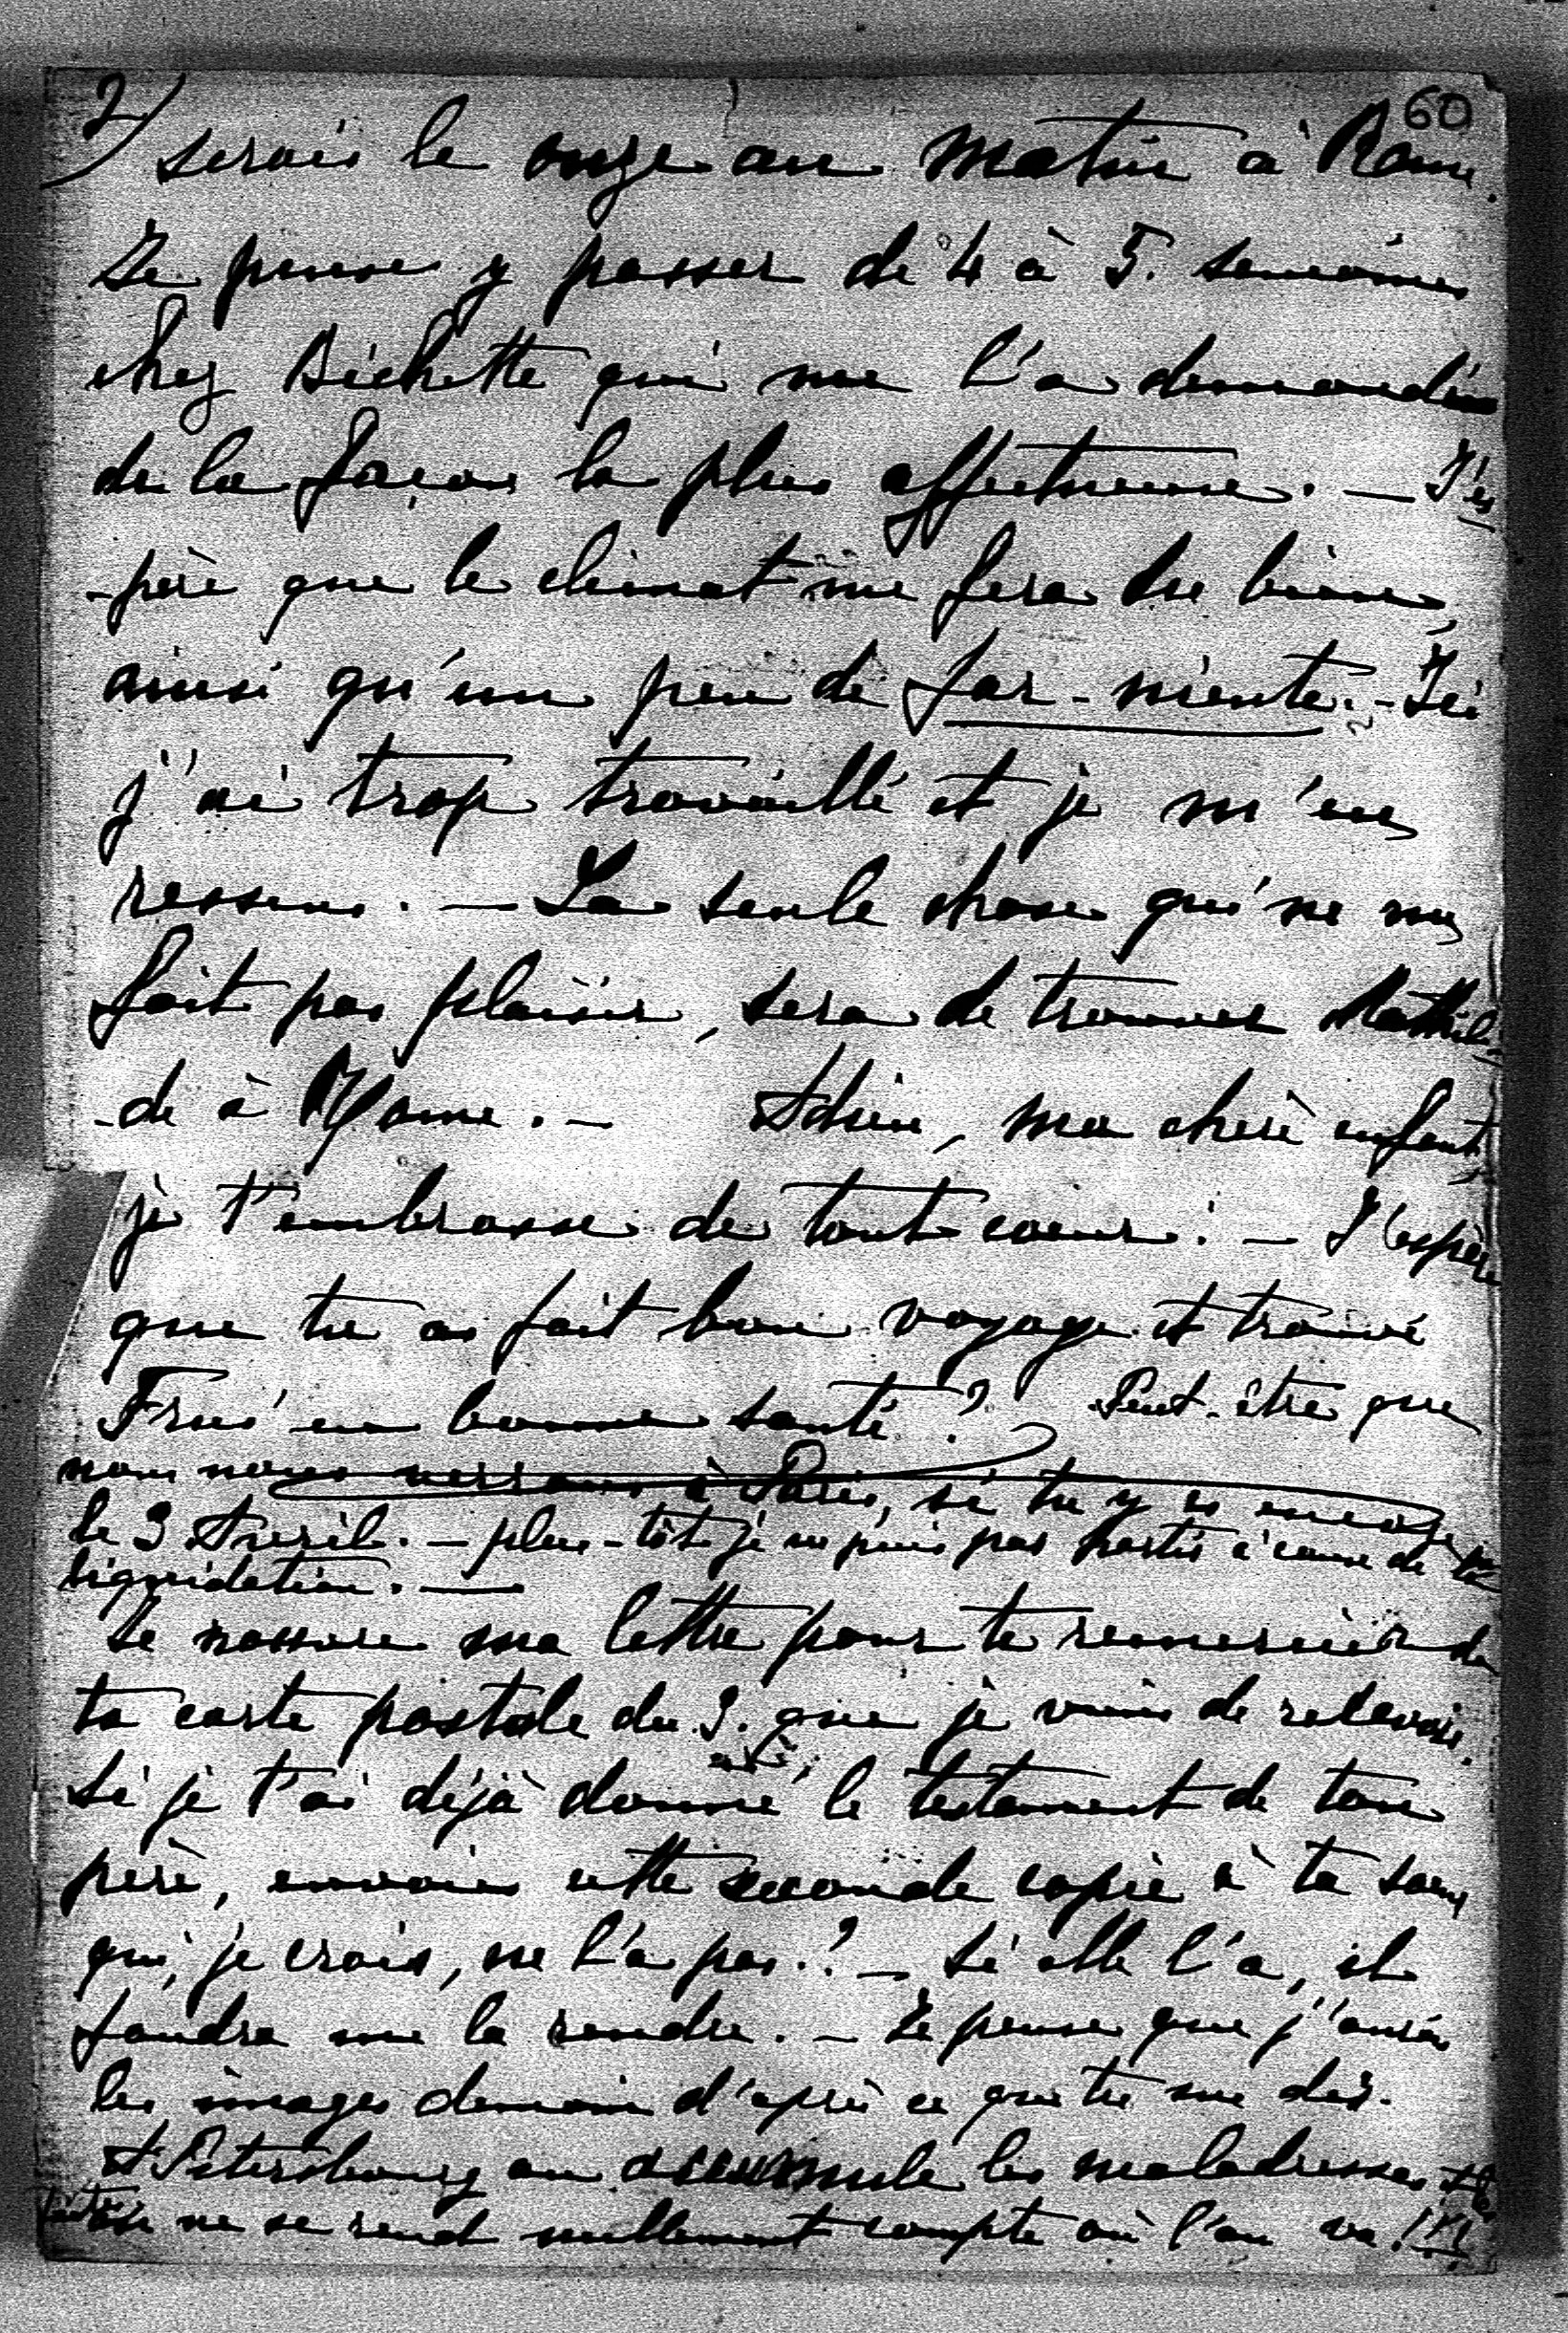 2) 60
serais le onze au matin à Rome.
Je pense y passer de 4 à 5. semaines
chez Bichette qui me l'a demandé
de la façon la plus affectueuse. — J'es
-père que le climat me fera du bien,
ainsi qu'un peu de far-niente. - Ici
j'ai trop travaillé et je m'en
ressens. — La seule chose qui ne me
fait pas plaisir, sera de trouver Mathil-
-de à Rome. — Adieu, ma chère enfant,
je t'embrasse de tout coeur. — J'espère
que tu as fait bon voyage et trouvé
en bonne santé? Peut-être que
nous nous verrons à Paris, si tu y es encore
le 3 Avril. — plus-tôt je ne puis pas partir à cause de la
liquidation. —
Je rouvre ma lettre pour te remercier de
ta carte postale du 3. que je viens de recevoir.
Si je t'ai déjà donné le testament de ton
père, envoies cette seconde copie à ta soeur
qui, je crois, ne l'a pas? — Si elle l'a, il
faudra me la rendre. — Je pense que j'aurai
les images demain d'après ce que tu me dis.
A Pétersbourg on accumule les maladresses
ne se rend nullement compte où l'on va!!!